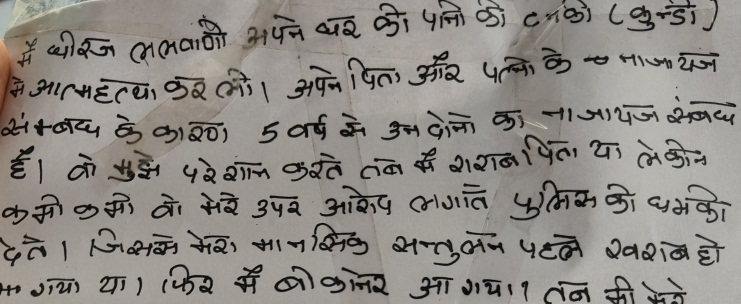 मैं धीरज ललवाणी अपने घर की पानी की टनकी (कुन्डी)
में आत्महत्या कर ली। अपने पिता और पत्नी के नाजायज
संम्बध के कारण 5 वर्ष से उन दोनो का नाजायज संबध
है। वो मुझे परेशान करते तब मैं शराब पिता था लेकीन
कभी कभी वो मेरे उपर आरोप लगाते पुलिस की धमकी
देते। जिससे मेरा मानसिक सन्तुलन पहले खराब हो
गया था। फिर मैं बीकानेर आ गया। तब भी मेरे